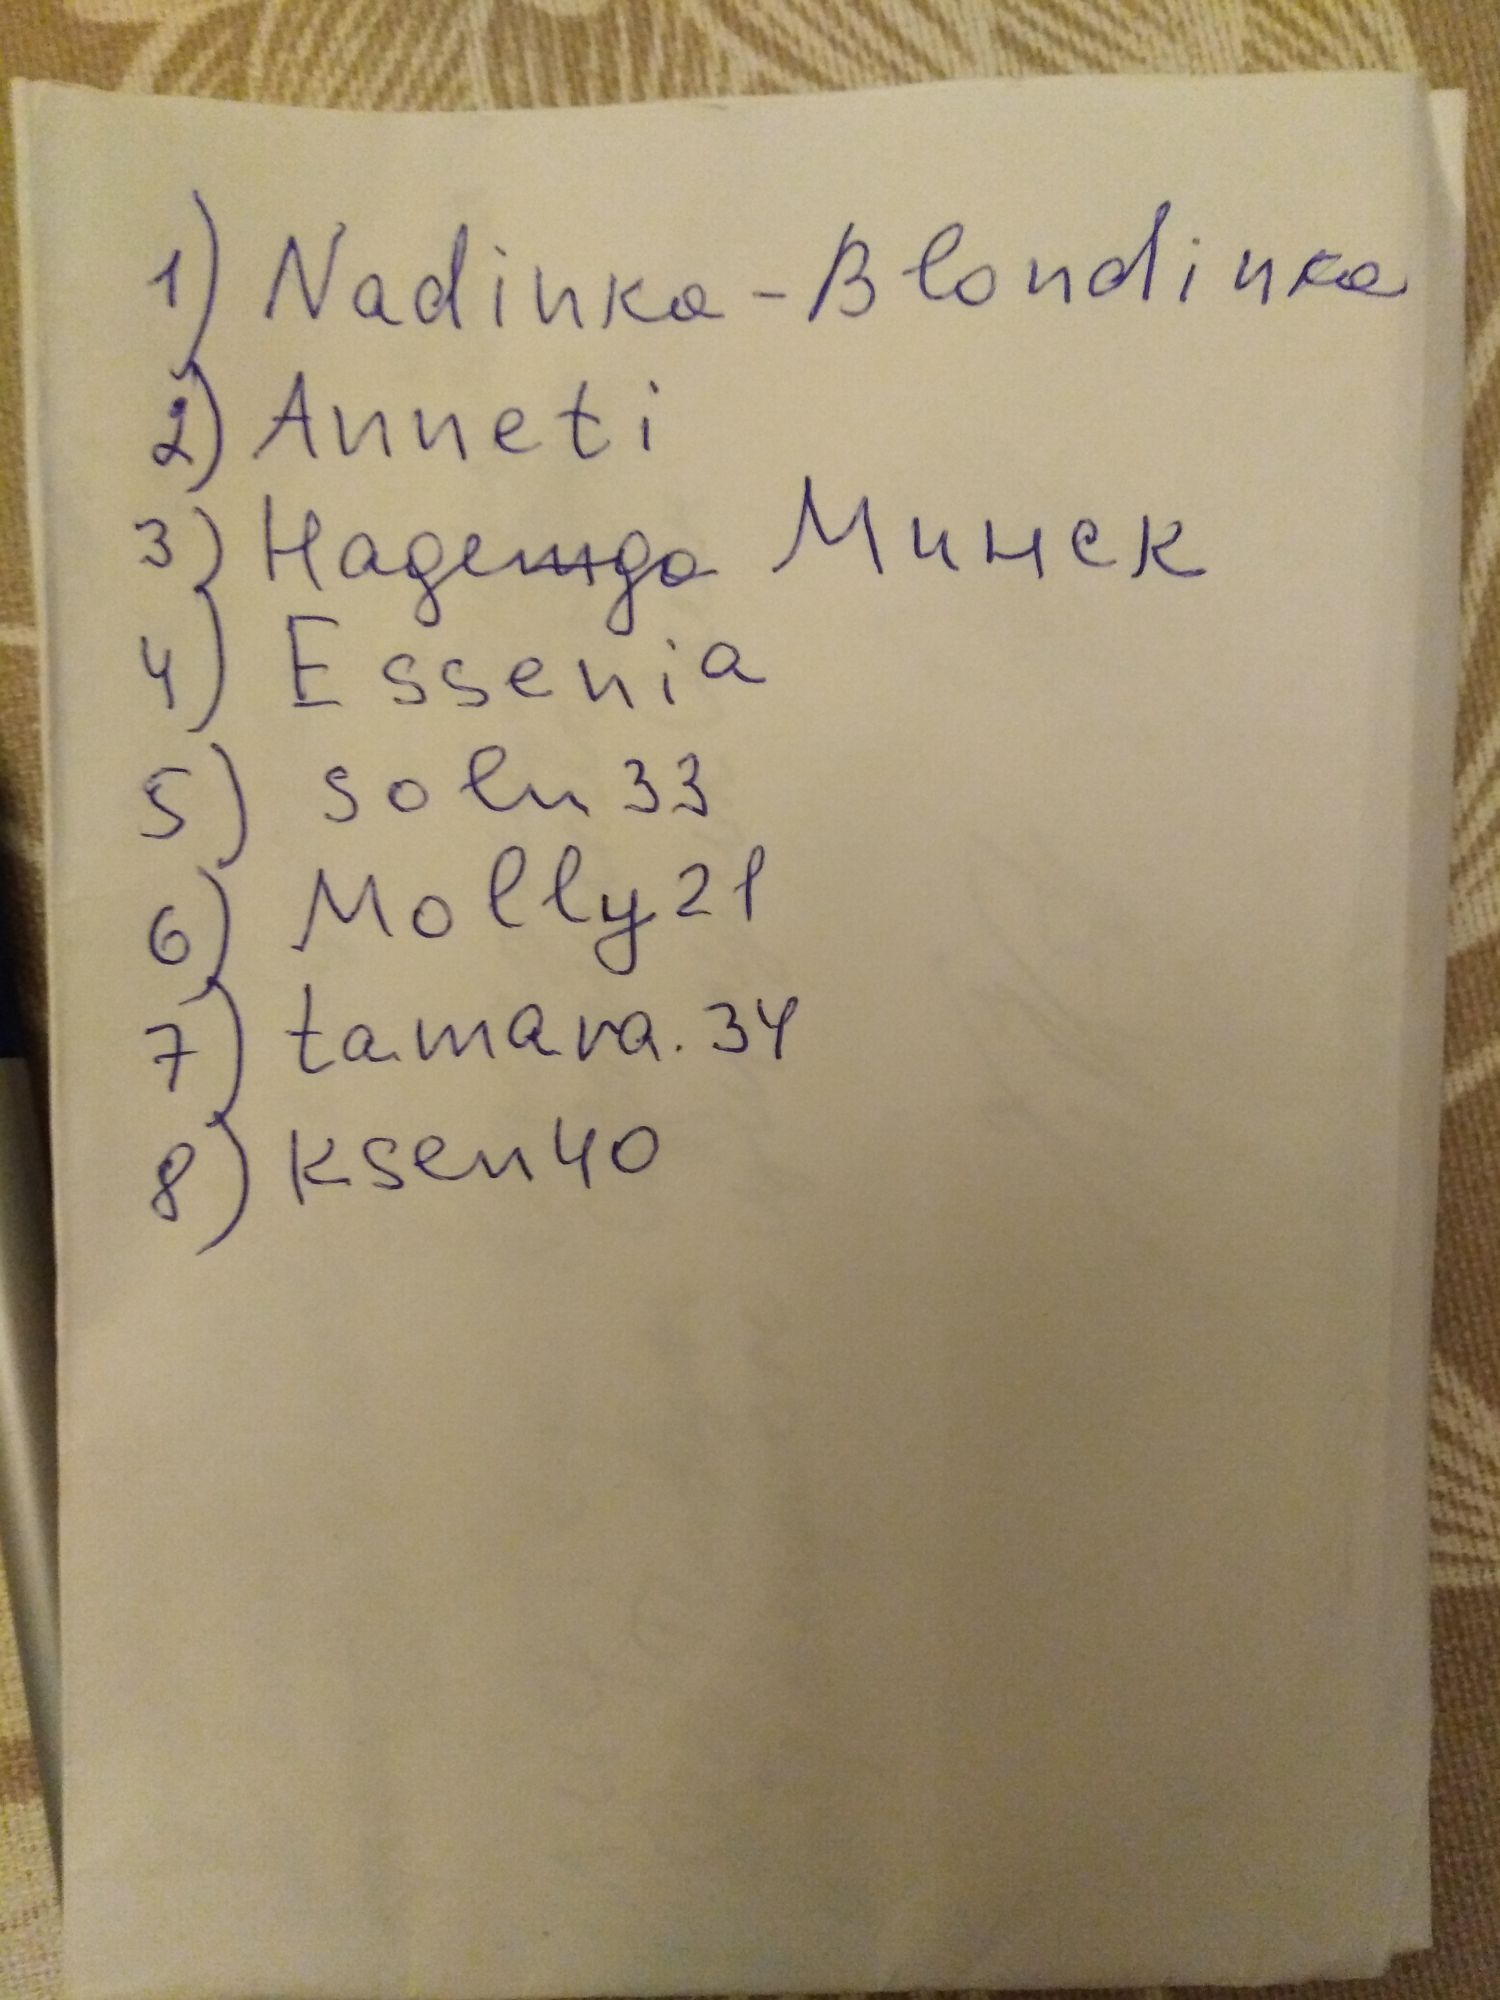 1) Nadinka-Blondinka
2) Anneti
3) Надежда Минск
4) Essenia
5) soln33
6) Molly21
7) tamara.34
8) ksen40